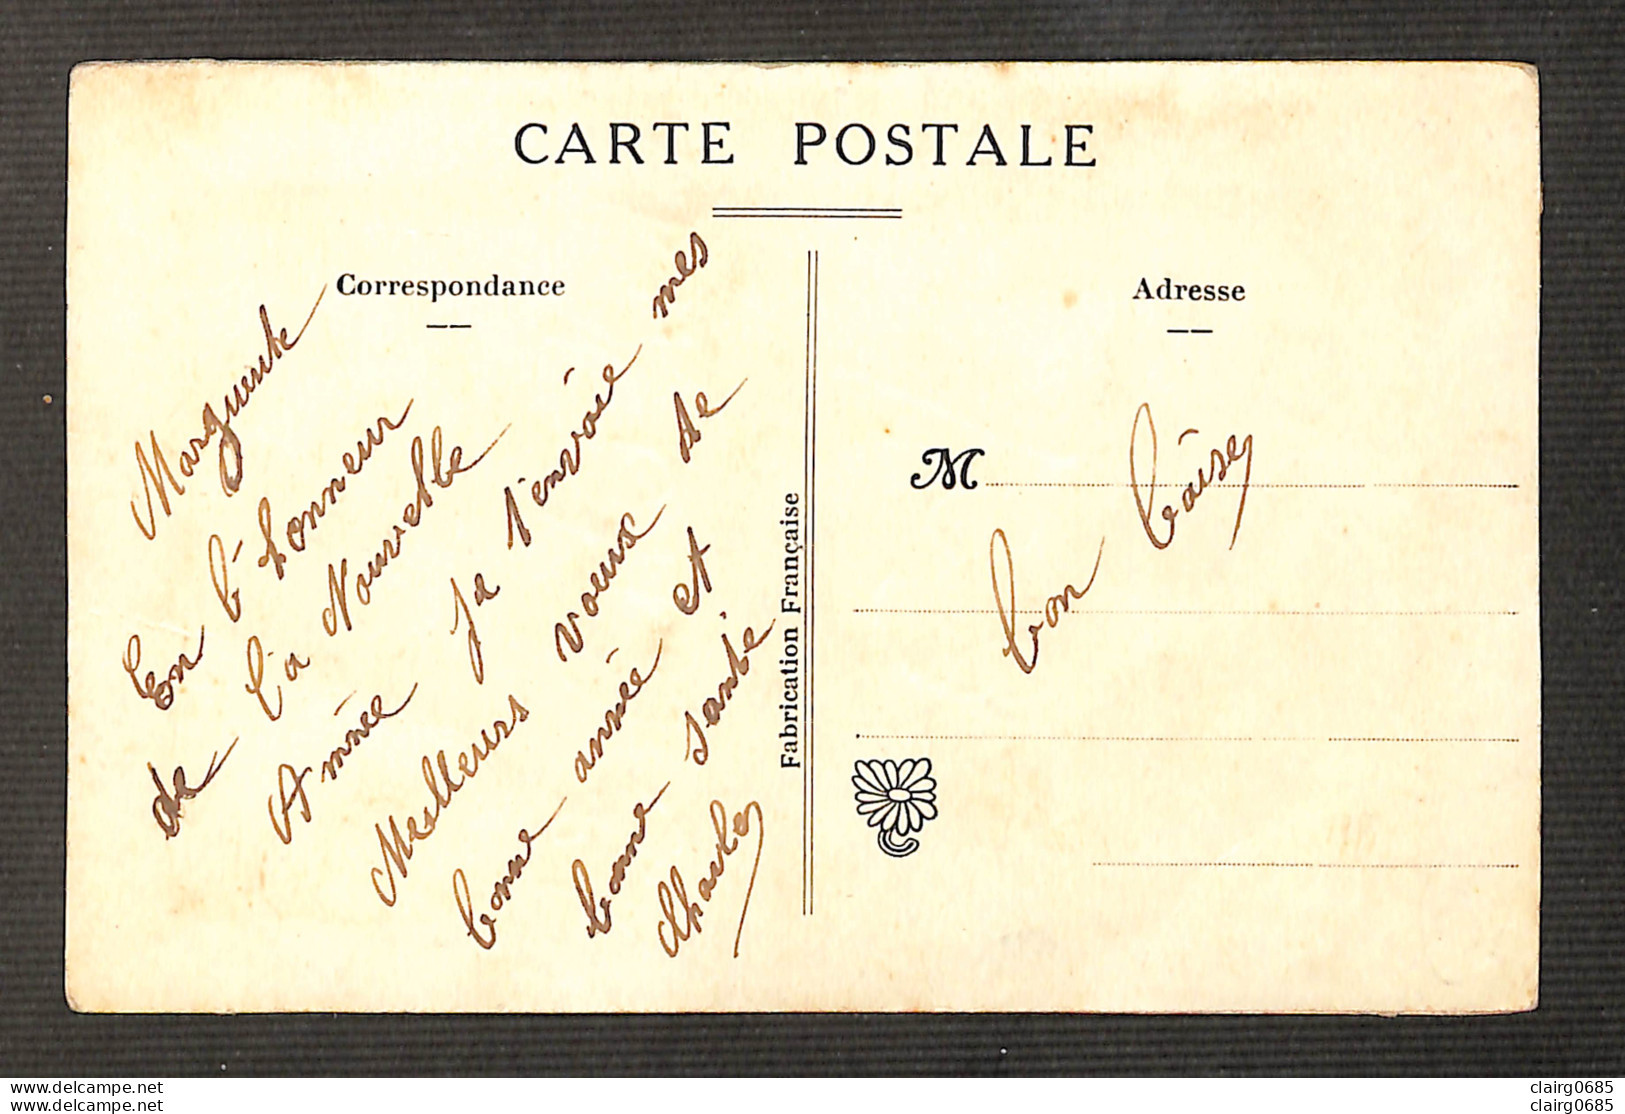 CARTE POSTALE
Correspondance
Marguerite
En l'honneur
de la Nouvelle
Année Je t'envoie mes
Meilleurs voeux de
bonne année et
bonne santé
Charles
Fabrication Française
Adresse
M
bon baise
www.delcampe.net
www.delcampe.net
clairg0685
clairg0685